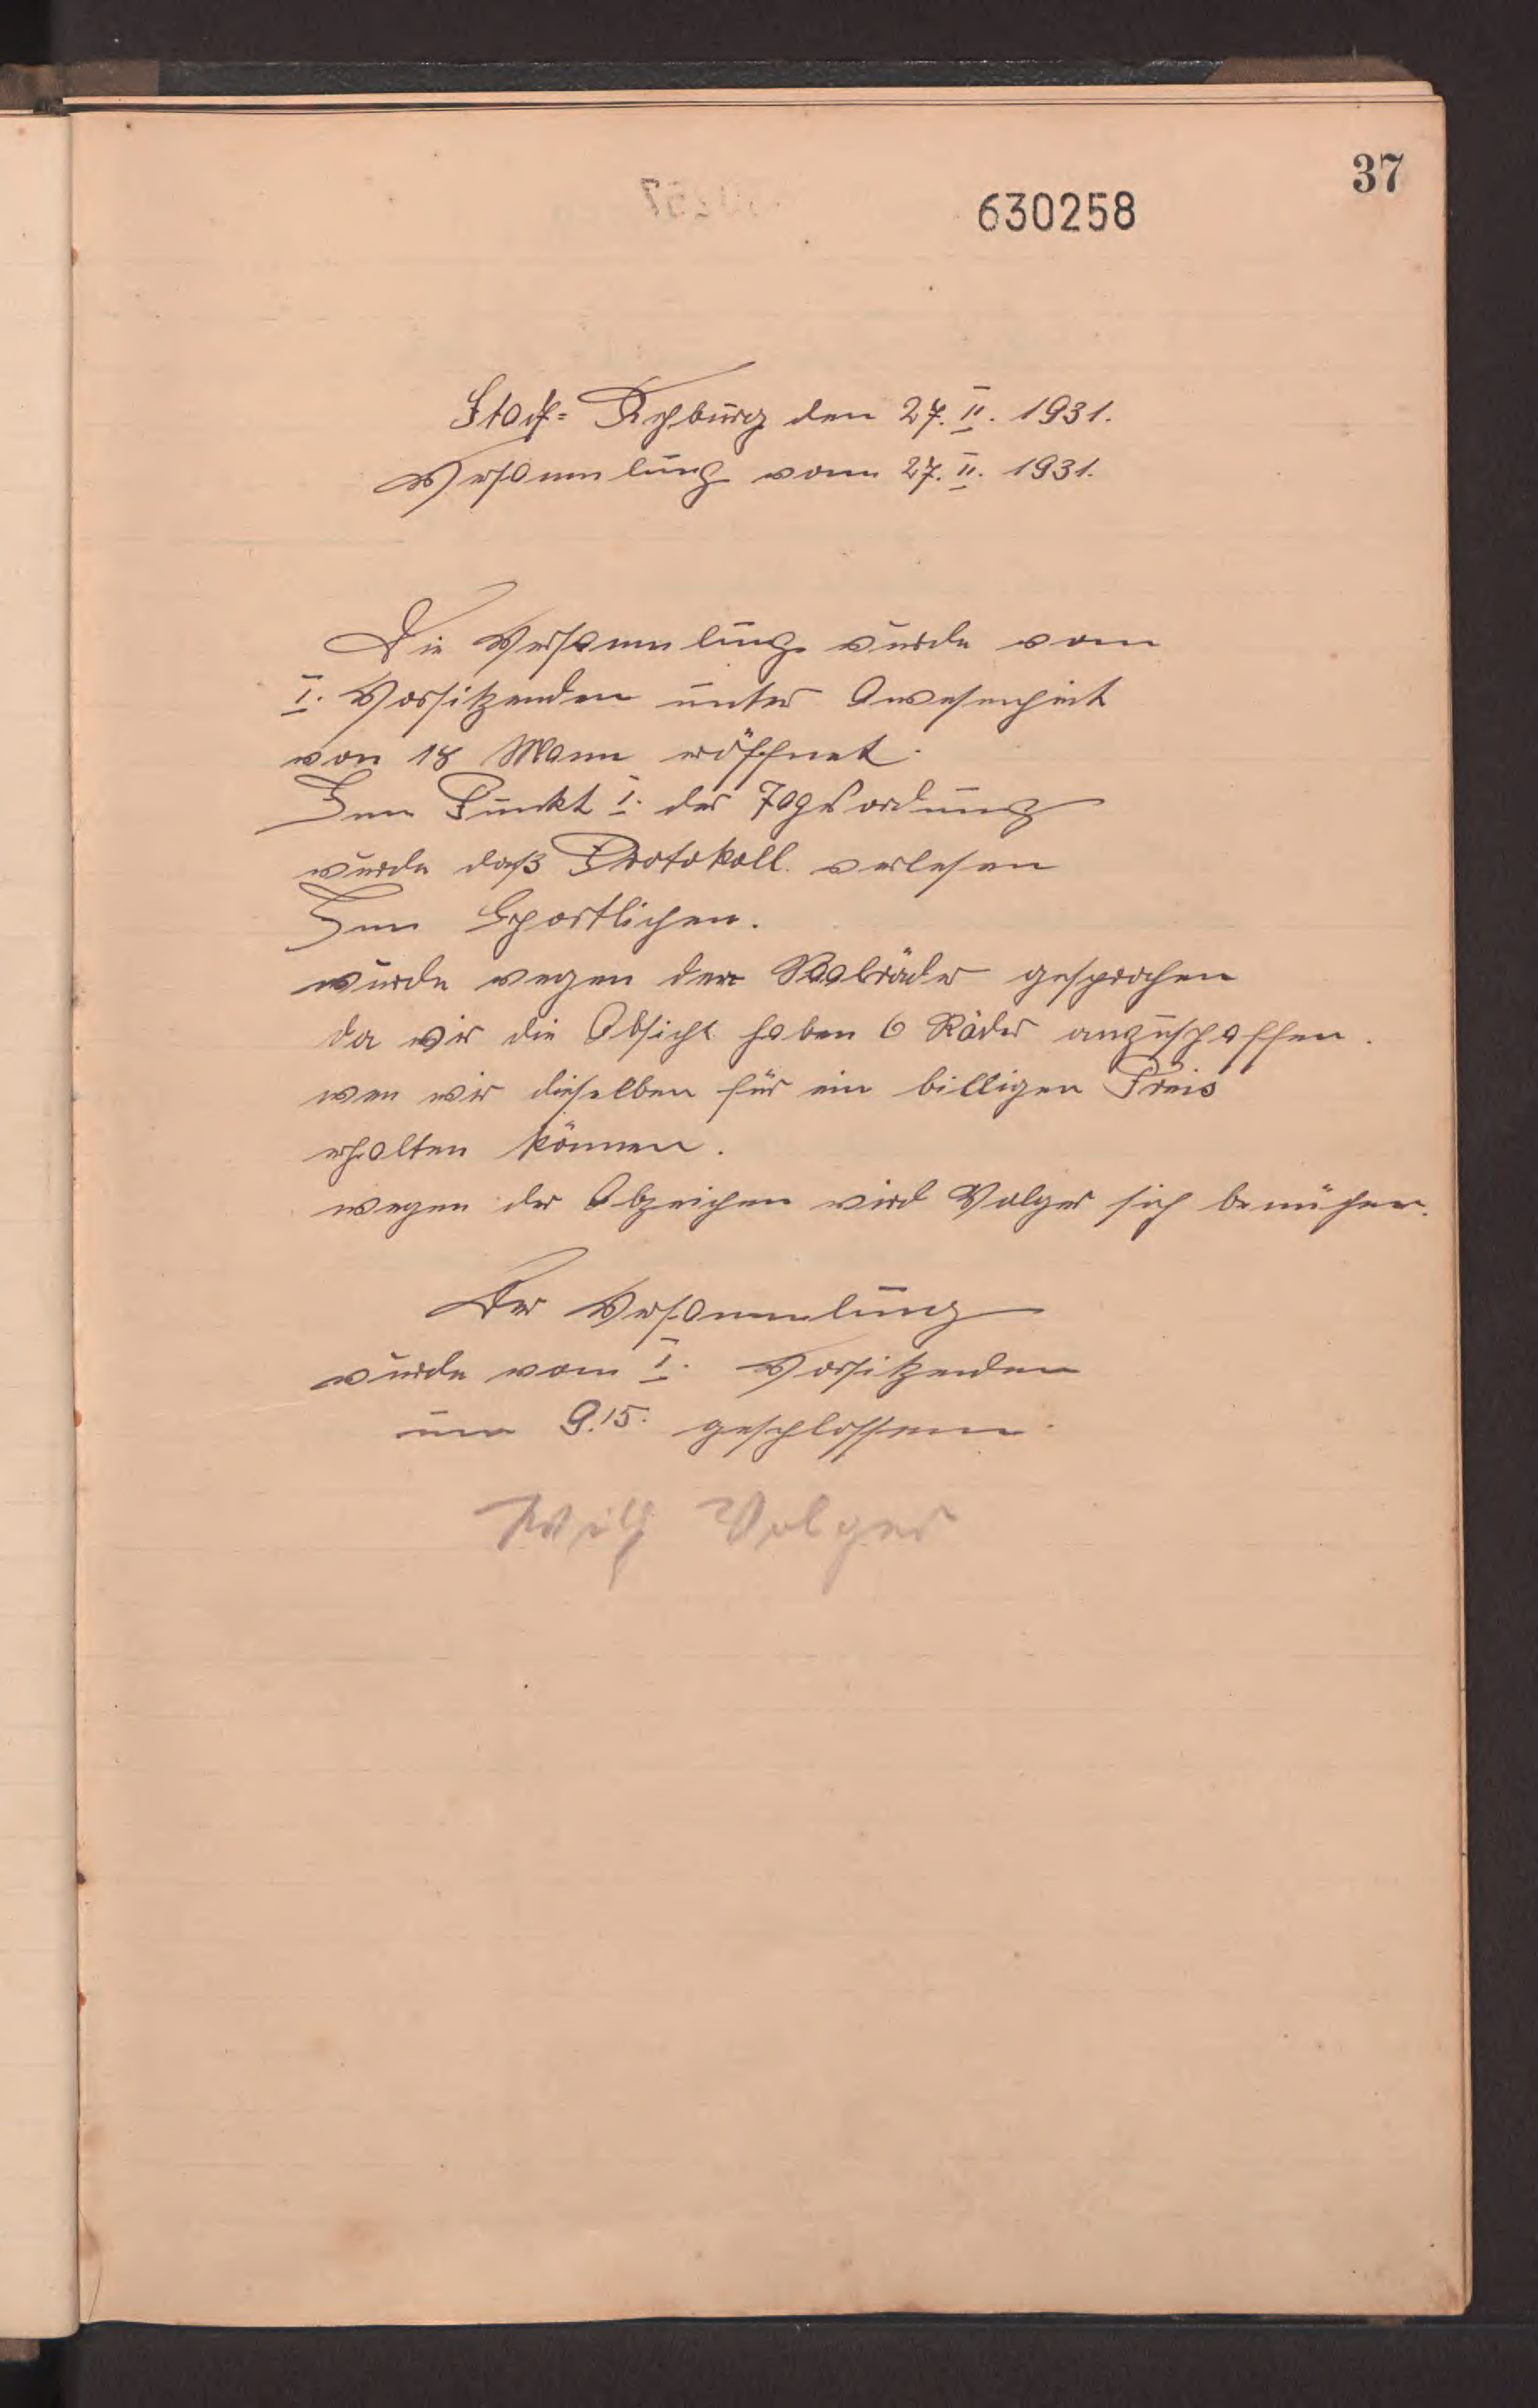 37
630258
Stadt= Rehburg den 27. II. 1931.
Versammlung vom 27. II. 1931.
Die Versammlung wurde vom
I. Vorsitzenden unter Anwesenheit
von 18 Mann eröffnet.
Zum Punkt I. der Tagesordnung
wurde daß Protokoll verlesen
Zum Sportlichen.
wurde wegen der Saalräder gesprochen
da wir die Absicht haben 6 Räder anzuschaffen.
wen wir dieselben für ein billigen Preis
erhalten können.
wegen der Abzeichen wird Volger sich bemühen.
Der Versammlung
wurde vom I. Vorsitzenden
um 9.15. geschlossen.
Wilh Volger